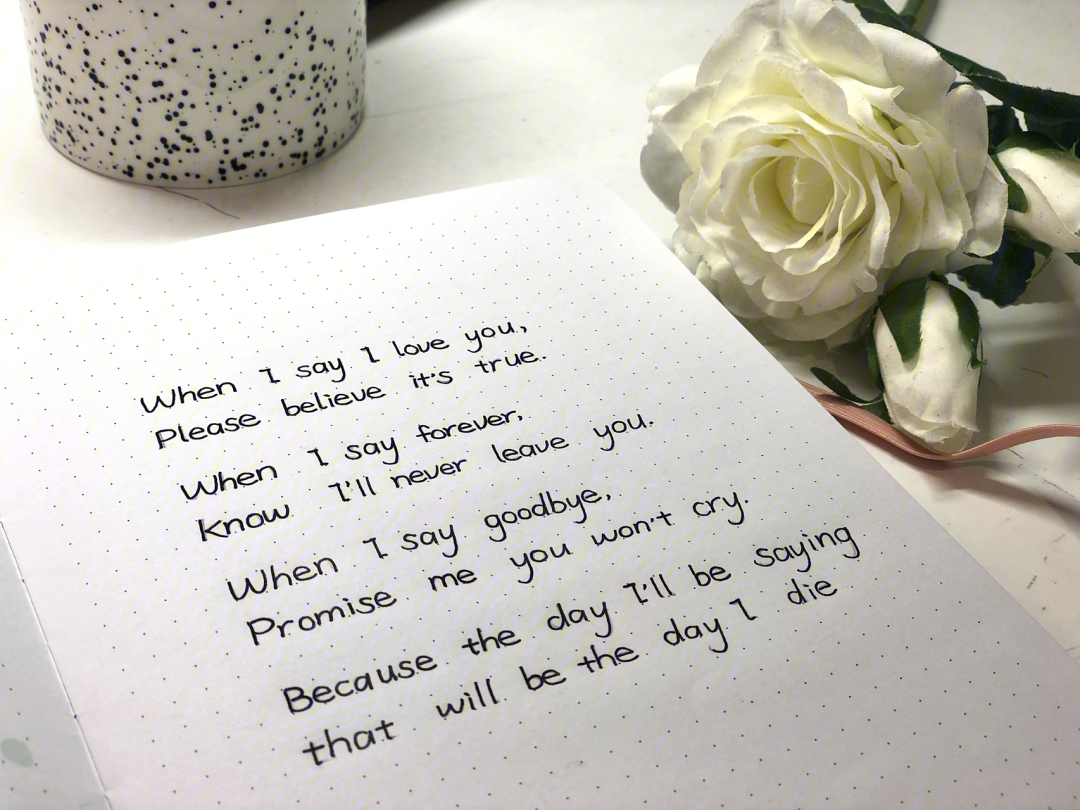 When I say I love you,
Please believe it's true.
When I say forever,
know I'll never leave you.
When I say goodbye,
Promise me you won't cry.
Because the day I'll be saying
that will be the day I die